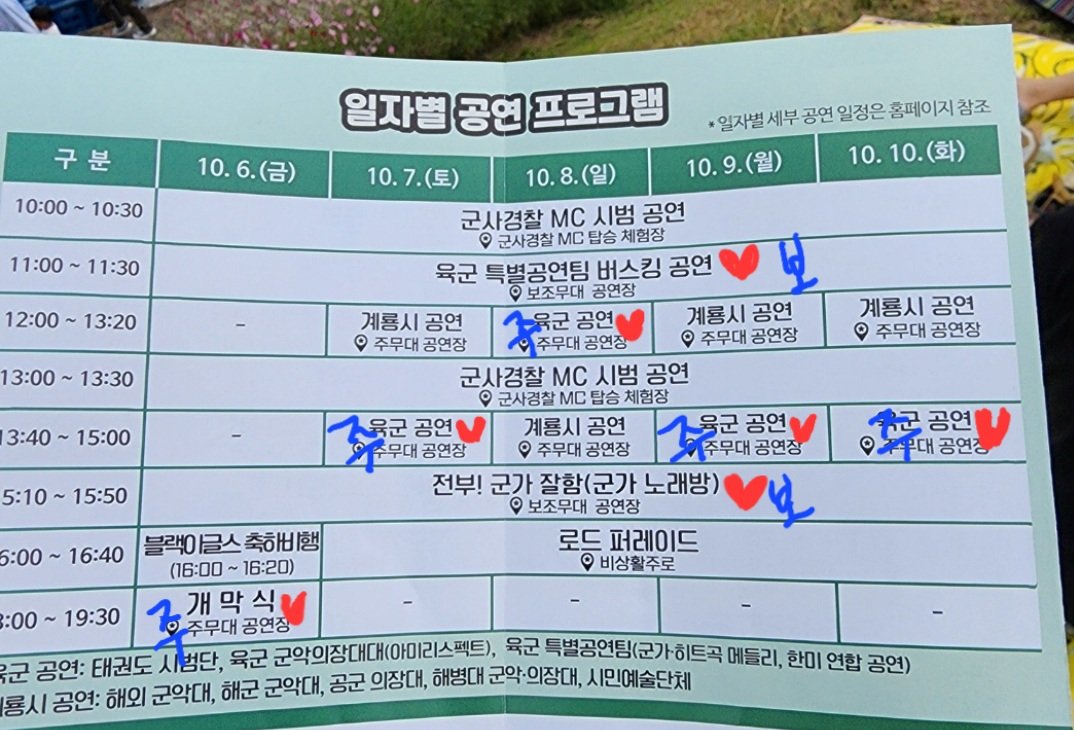 일자별 공연 프로그램
* 일자별 세부 공연 일정은 홈페이지 참조
구 분 10. 6.(금) 10. 7.(토) 10. 8.(일) 10. 9.(월) 10. 10.(화)
10:00 ~ 10:30 군사경찰 MC 시범 공연
군사경찰 MC 탑승 체험장
11:00 ~ 11:30 육군 특별공연팀 버스킹 공연 ♥ 보
보조무대 공연장
12:00 ~ 13:20 - 계룡시 공연 주 육군 공연 ♥ 계룡시 공연 계룡시 공연
주무대 공연장 주무대 공연장 주무대 공연장 주무대 공연장
13:00 ~ 13:30 군사경찰 MC 시범 공연
군사경찰 MC 탑승 체험장
13:40 ~ 15:00 - 주 육군 공연 ♥ 계룡시 공연 주 육군 공연 ♥ 주 육군 공연 ♥
주무대 공연장 주무대 공연장 주무대 공연장 주무대 공연장
5:10 ~ 15:50 전부! 군가 잘함(군가 노래방) ♥ 보
보조무대 공연장
6:00 ~ 16:40 블랙이글스 축하비행 로드 퍼레이드
(16:00 ~ 16:20) 비상활주로
8:00 ~ 19:30 주 개 막 식 ♥ - - - -
주무대 공연장
육군 공연: 태권도 시범단, 육군 군악의장대대(아미리스펙트), 육군 특별공연팀(군가·히트곡 메들리, 한미 연합 공연)
계룡시 공연: 해외 군악대, 해군 군악대, 공군 의장대, 해병대 군악·의장대, 시민예술단체